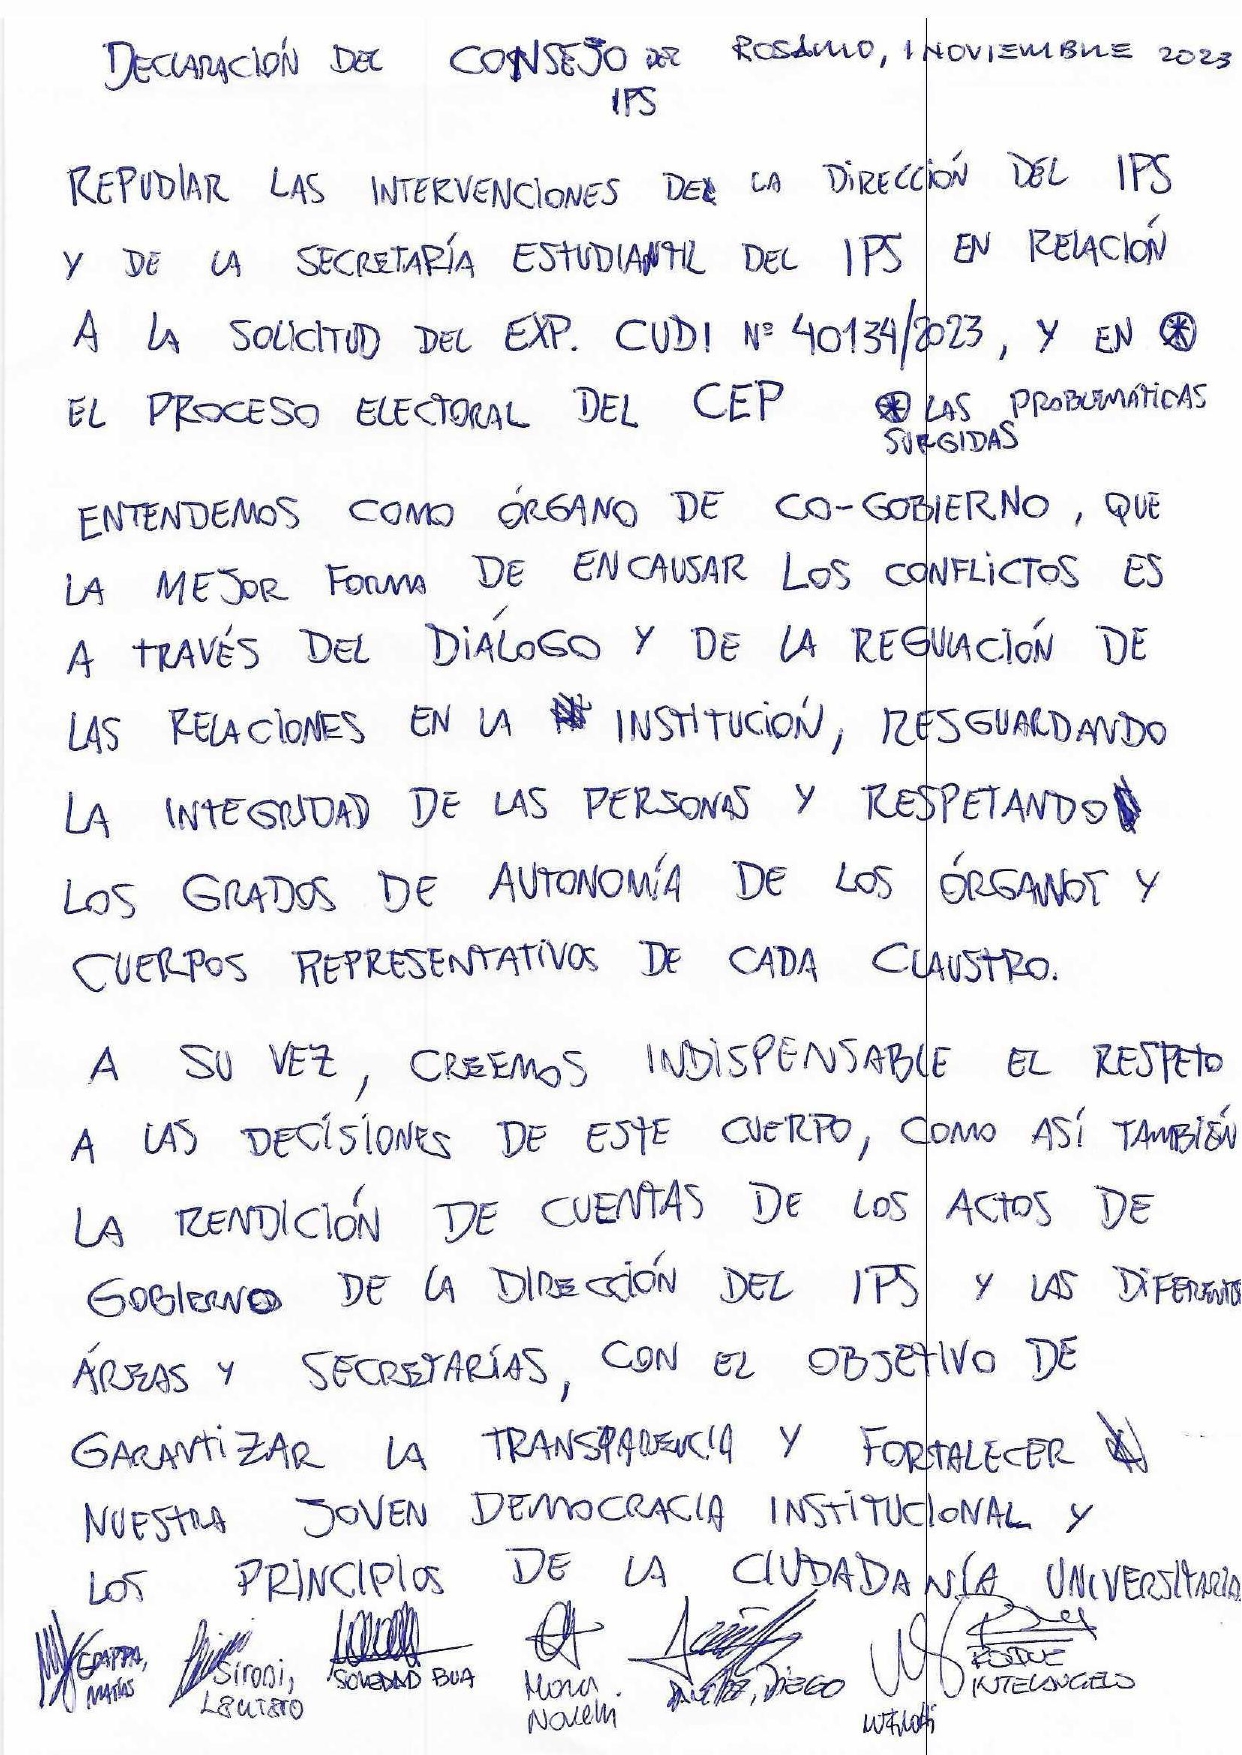 DECLARACIÓN DEL CONSEJO DEL ROSARIO, 1 NOVIEMBRE 2023
IPS
REPUDIAR LAS INTERVENCIONES DE LA DIRECCIÓN DEL IPS
Y DE LA SECRETARÍA ESTUDIANTIL DEL IPS EN RELACIÓN
A LA SOLICITUD DEL EXP. CUDI Nº 40134/2023, Y EN ⊛
EL PROCESO ELECTORAL DEL CEP ⊛ LAS PROBLEMÁTICAS
SURGIDAS
ENTENDEMOS COMO ÓRGANO DE CO-GOBIERNO, QUE
LA MEJOR FORMA DE ENCAUSAR LOS CONFLICTOS ES
A TRAVÉS DEL DIÁLOGO Y DE LA REGULACIÓN DE
LAS RELACIONES EN LA INSTITUCIÓN, RESGUARDANDO
LA INTEGRIDAD DE LAS PERSONAS Y RESPETANDO
LOS GRADOS DE AUTONOMÍA DE LOS ÓRGANOS Y
CUERPOS REPRESENTATIVOS DE CADA CLAUSTRO.
A SU VEZ, CREEMOS INDISPENSABLE EL RESPETO
A LAS DECÍSIONES DE ESTE CUERPO, COMO ASÍ TAMBIÉN
LA RENDICIÓN DE CUENTAS DE LOS ACTOS DE
GOBIERNO DE LA DIRECCIÓN DEL IPS Y LAS DIFERENTES
ÁREAS Y SECRETARÍAS, CON EL OBJETIVO DE
GARANTIZAR LA TRANSPARENCIA Y FORTALECER
NUESTRA JOVEN DEMOCRACIA INSTITUCIONAL Y
LOS PRINCIPIOS DE LA CIUDADANÍA UNIVERSITARIA
GRAPPA, MATÍAS
Sironi, Lautaro
SOLEDAD BUA
Mora
DIEGO